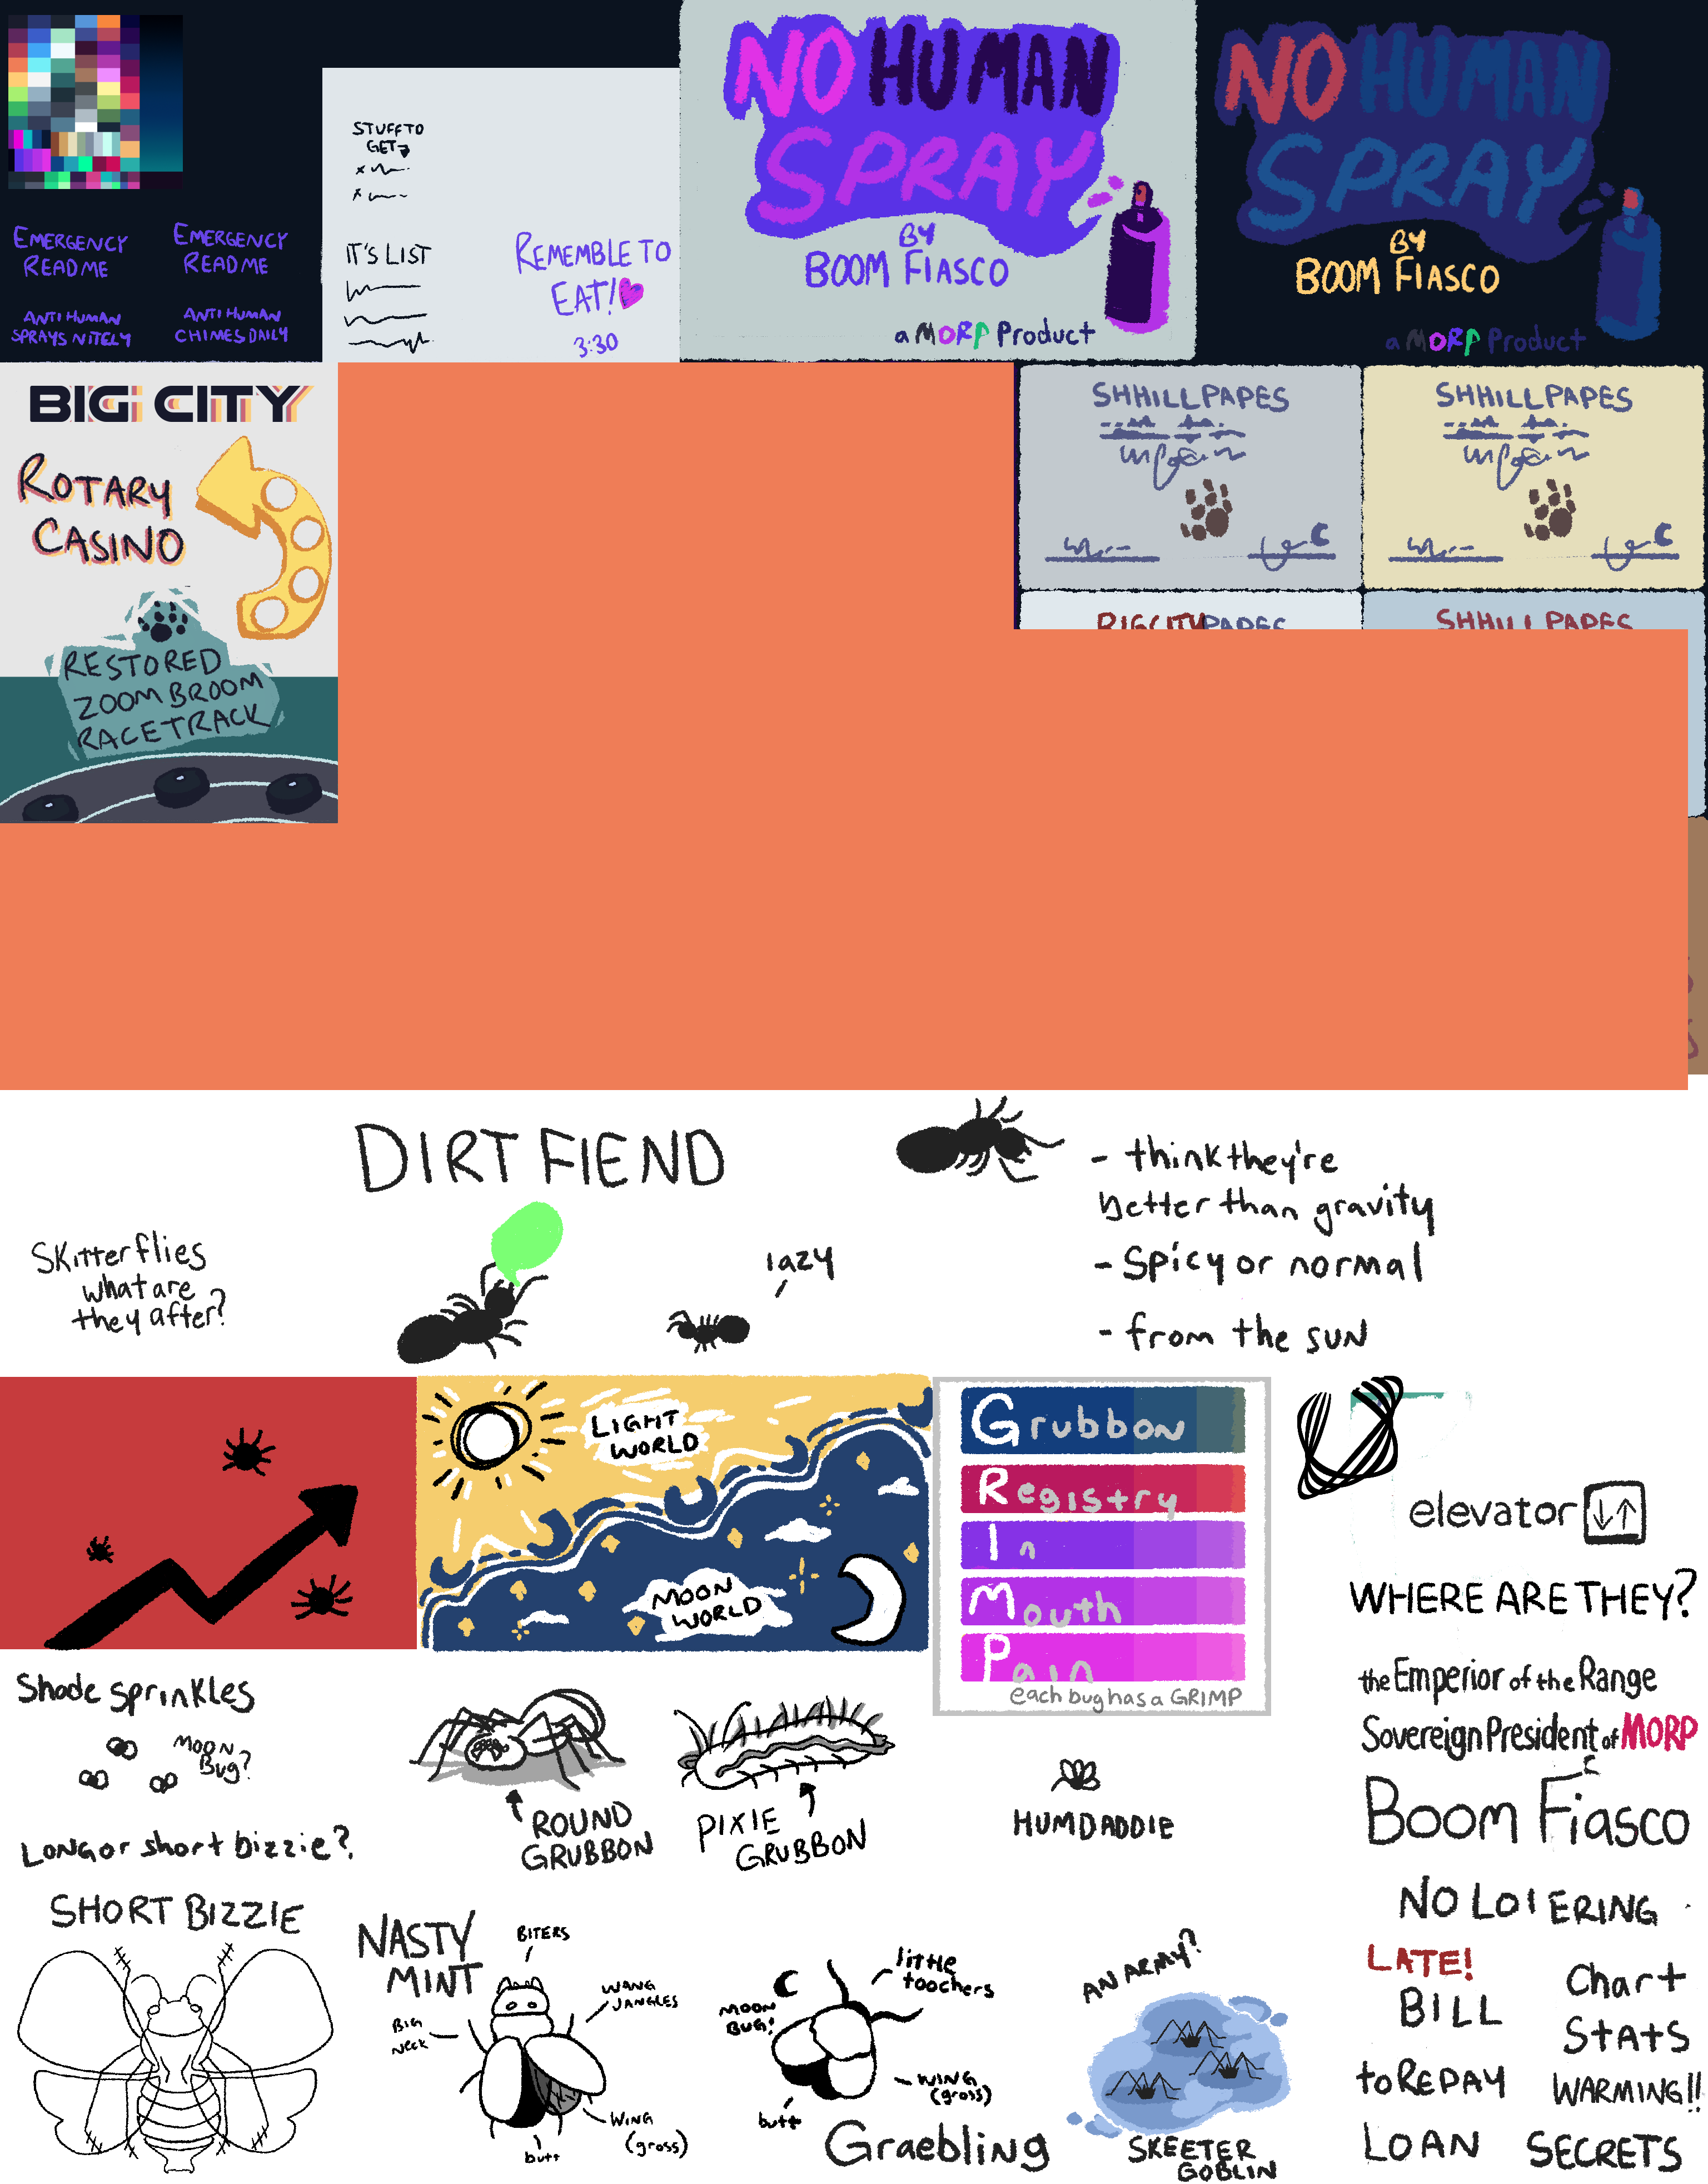 EMERGENCY
README
EMERGENCY
README
ANTI HUMAN
SPRAYS NITELY
ANTI HUMAN
CHIMES DAILY
STUFF TO
GET
IT'S LIST
REMEMBLE TO
EAT!
3:30
NO HUMAN
SPRAY
BY
BOOM FIASCO
a MORP Product
NO HUMAN
SPRAY
BY
BOOM FIASCO
a MORP Product
BIG CITY
ROTARY
CASINO
RESTORED
ZOOM BROOM
RACETRACK
SHHILLPAPES
SHHILLPAPES
BIGCITYPAPES
SHHILLPAPES
DIRT FIEND
- think they're
better than gravity
- Spicy or normal
- from the sun
Skitterflies
what are
they after?
lazy
LIGHT
WORLD
MOON
WORLD
Grubbon
Registry
In
Mouth
Pain
each bug has a GRIMP
elevator
WHERE ARE THEY?
the Emperior of the Range
Sovereign President of MORP
Boom Fiasco
Shade sprinkles
MOON
Bug?
Long or short bizzie?
ROUND
GRUBBON
PIXIE
GRUBBON
HUMDADDIE
SHORT BIZZIE
NASTY
MINT
BITERS
WANG
JANGLES
BIG
NECK
WING
(gross)
butt
MOON
BUG!
little
toochers
WING
(gross)
butt
Graebling
AN ARMY?
SKEETER
GOBLIN
NO LOIERING
LATE!
BILL
to REPAY
LOAN
Chart
Stats
WARMING!!
SECRETS